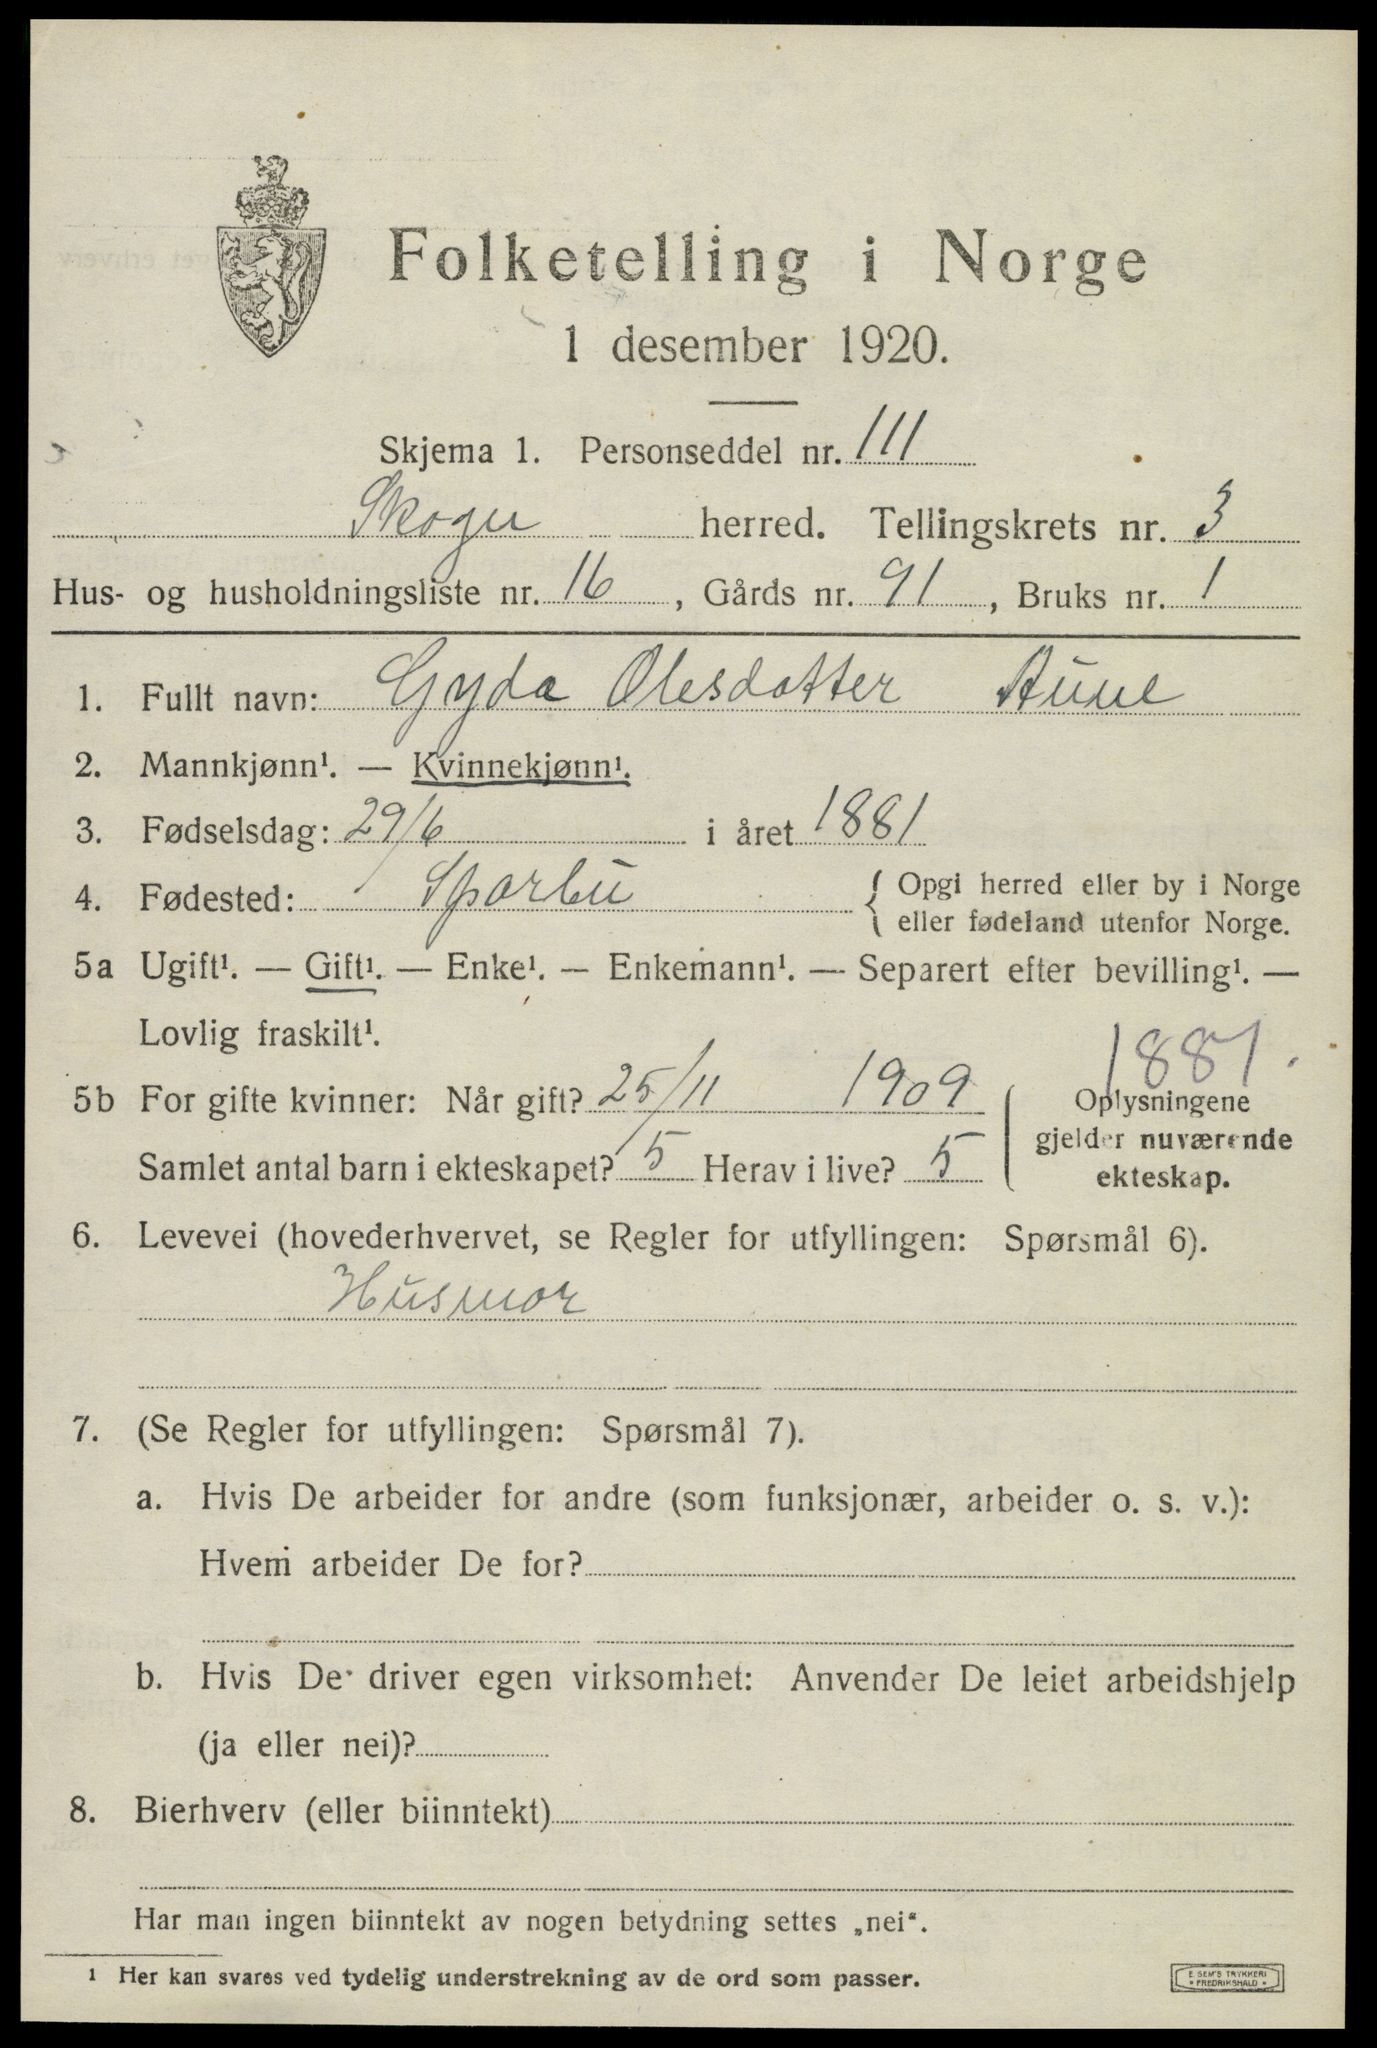 Folketelling i Norge
1 desember 1920.
Skjema 1. Personseddel nr. 111
Skogn herred. Tellingskrets nr. 3
Hus- og husholdningsliste nr. 16, Gårds nr. 91, Bruks nr. 1
1. Fullt navn: Gyda Olesdatter Aune
2. Mannkjønn¹. — Kvinnekjønn¹.
3. Fødselsdag: 29/6 i året 1881
4. Fødested: Sparbu { Opgi herred eller by i Norge
eller fødeland utenfor Norge.
5a Ugift¹. — Gift¹. — Enke¹. — Enkemann¹. — Separert efter bevilling¹. —
Lovlig fraskilt¹.
1881.
5b For gifte kvinner: Når gift? 25/11 1909 ( Oplysningene
gjelder nuværende
Samlet antal barn i ekteskapet? 5 Herav i live? 5
ekteskap.
6. Levevei (hovederhvervet, se Regler for utfyllingen: Spørsmål 6).
Husmor
7. (Se Regler for utfyllingen: Spørsmål 7).
a. Hvis De arbeider for andre (som funksjonær, arbeider o. s. v.):
Hvem arbeider De for?
b. Hvis De driver egen virksomhet: Anvender De leiet arbeidshjelp
(ja eller nei)?
8. Bierhverv (eller biinntekt)
Har man ingen biinntekt av nogen betydning settes „nei“.
1 Her kan svares ved tydelig understrekning av de ord som passer.
E. SEM'S TRYKKERI
• FREDRIKSHALD •